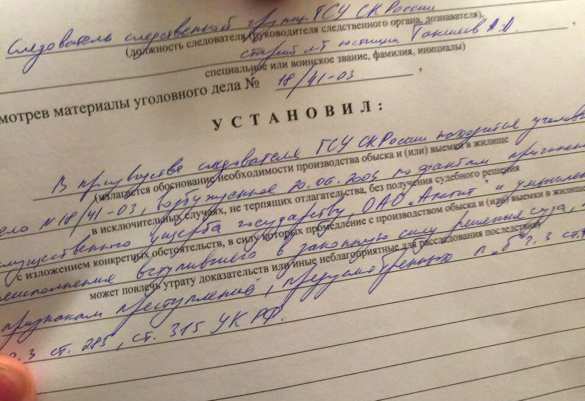 Следователь следственной группы ГСУ СК России
(должность следователя (руководителя следственного органа, дознавателя),
старший л-т юстиции
специальное или воинское звание, фамилия, инициалы)
смотрев материалы уголовного дела № 18/41-03 ,
УСТАНОВИЛ:
В следователя ГСУ СК России находится уголовн
(излагается обоснование необходимости производства обыска и (или) выемки в жилище
дело № 18/41-03, возбужденное по фактам
в исключительных случаях, не терпящих отлагательства, без получения судебного решения
ущерба государству ОАО "Апатит" и
с изложением конкретных обстоятельств, в силу которых промедление с производством обыска и (или) выемки в жили
вступившего в законную силу решения суда,
может повлечь утрату доказательств или иные неблагоприятные для расследования последствия)
признакам преступлений, предусмотренных п. "б" ч. 3 ст.
ч. 3 ст. 285, ст. 315 УК РФ.